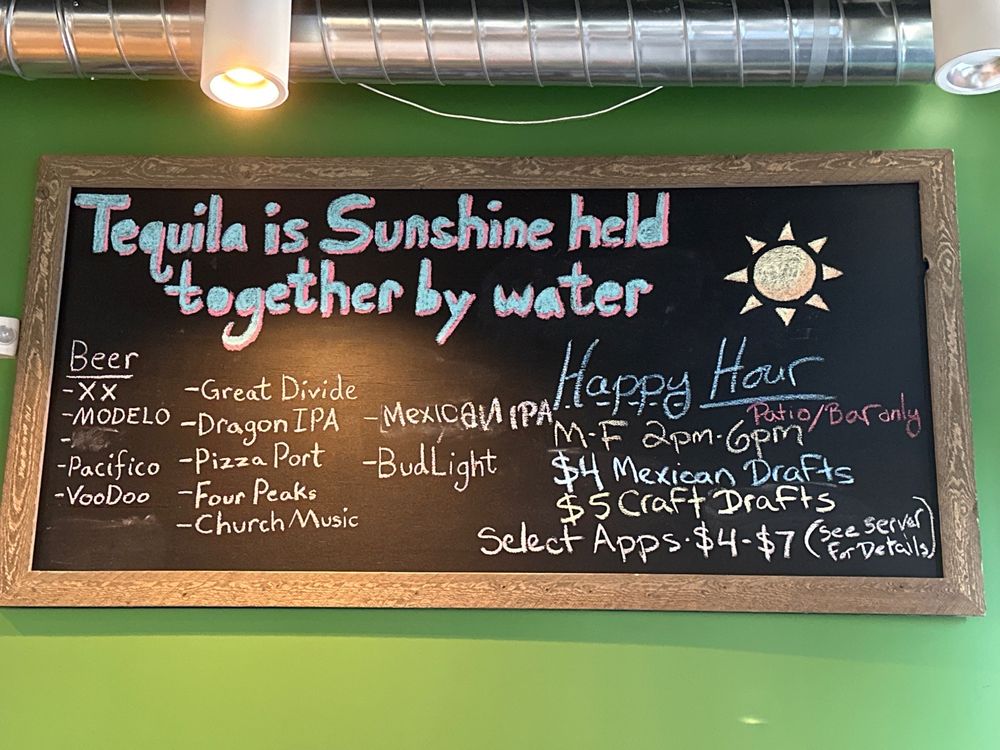 Tequila is Sunshine held
together by water
Beer
-XX
-MODELO
-
-Pacifico
-VooDoo
-Great Divide
-Dragon IPA
-Pizza Port
-Four Peaks
-Church Music
-Mexican IPA
-Bud Light
Happy Hour
Patio/Bar only
M-F 2pm-6pm
$4 Mexican Drafts
$5 Craft Drafts
Select Apps·$4-$7 (See Server
For Details)